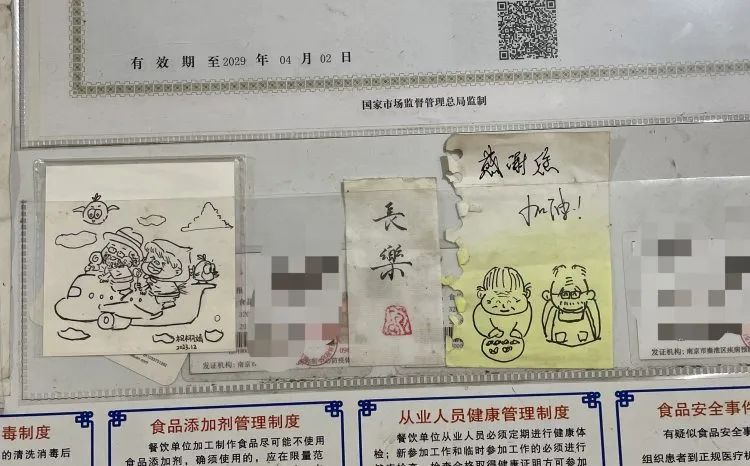 有效期至2029年04月02日
国家市场监督管理总局监制
2023.12
長
樂
感谢您
加油!
发证机构:南京
发证机构:南京市秦淮区疾病
毒管理制度
的清洗消毒后
食品添加剂管理制度
餐饮单位加工制作食品尽可能不使用
食品添加剂,确须使用的,应在限量范
从业人员健康管理制度
餐饮单位从业人员必须定期进行健康体
检;新参加工作和临时参加工作的必须进行
食品安全事件
有疑似食品安全事
组织患者到正规医疗机